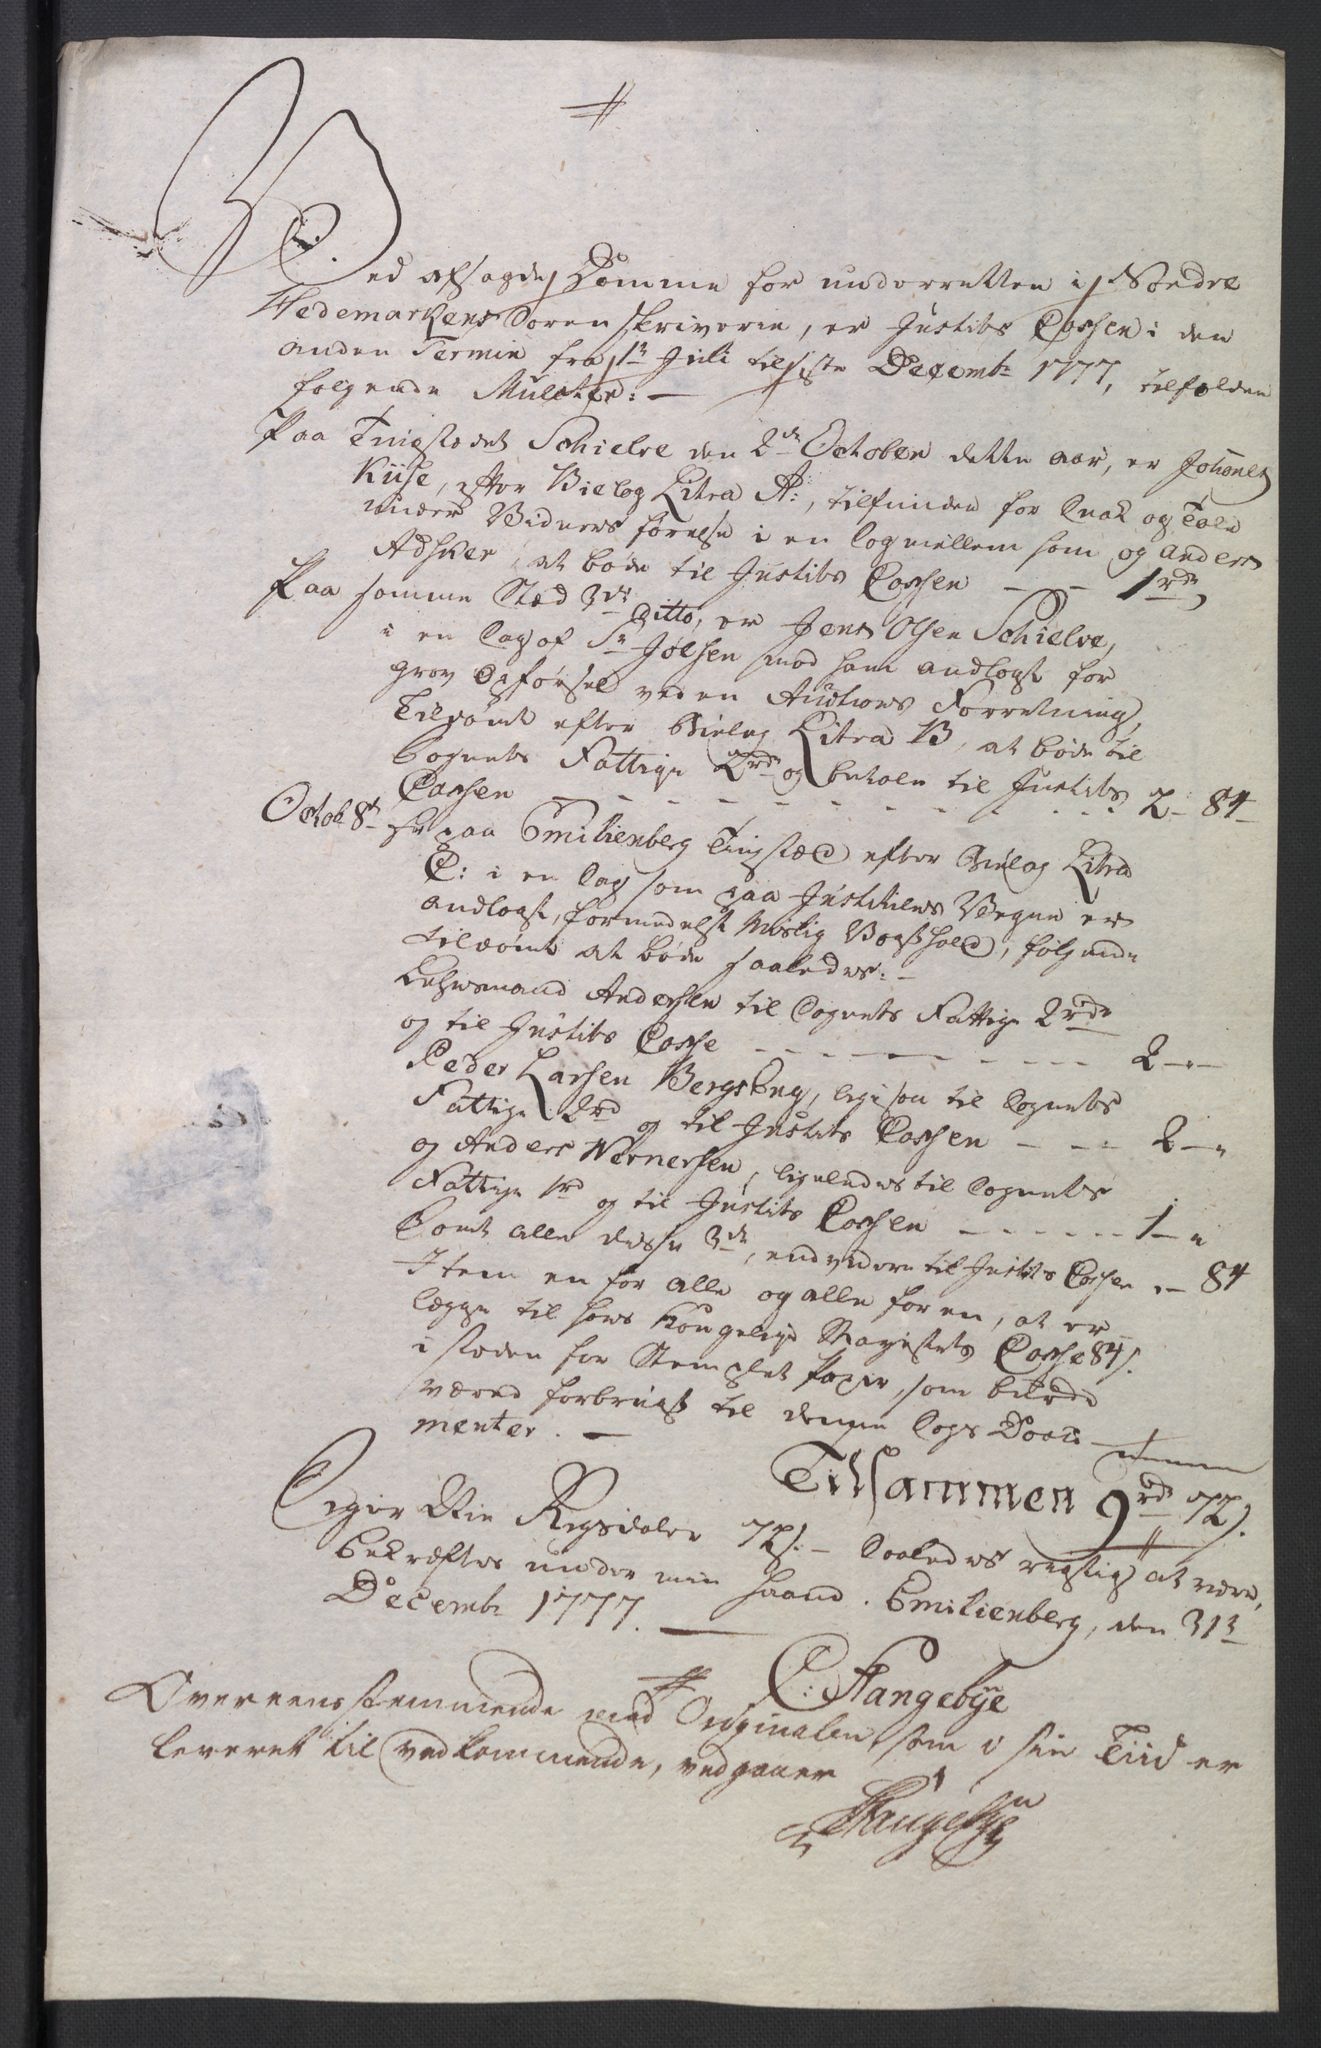 Ved afsagde Domme for underretten i Søndre
Hedemarkens Sorenskriverie, er Justits Cassen i den
anden Termin fra 1te Juli til siste Decembr 1777, tilfalden
følgende Mulcter: —
Paa Tingstædet Schielve den 2de October dette aar, er Johannes
Kiise, efter Bielog Litra A:, tilfunden for Snak og Tale
under Vidners førelse i en Sag mellem ham og Anders
Adsker, at bøde til Justits Cassen — — 1 rdr
Paa samme Stæd 3de ditto, er Jens Olsen Schielve,
i en Sag af Sr Jølsen mod ham anlagt for
grov Opførsel ved en Auctions Forretning,
Tildømt efter Bielag Litra B, at bøde til
Sognets Fattige 2 rdr og betale til Justits
Cassen - - - - - - - - - 2 - 84 -
Octob. 8de er paa Emilienberg Tingstæd efter Bielag Litra
C: i en Sag som paa Justitiens Vegne er
anlagt, formedelst Mislig Vogthold, følgende
tildømt at bøde saaledes: -
Lehnsmand Andersen til Sognets Fattige 2 rdr
og til Justits Casse - - - - - - - 2 - " -
Peder Larsen Bergseng, ligesaa til Sognets
Fattige 2 rd og til Justits Cassen - - - 2 - "
og Anders Wernersen, ligeledes til Sognets
Fattige 1 rd og til Justits Cassen - - - - - 1 - "
Samt alle disse 3de, endvidere til Justits Cassen " - 84
Item en for alle og alle for en, at er
lægge til hans Kongelige Mayestets Casse 84 s.
i stæden for Stemplet Papir, som burde
været forbrugt til denne Sags Docu-
menter. —
Tilsammen 9 rd 72 s.
Siger Nie Rigsdaler 72 s. - Saaledes rigtig at være,
bekræftes under min Haand. Emilienberg, den 31te
Decembr 1777. —
C: Stangebye
Overeensstemmende med Originalen, som i sin Tiid er
leveret til vedkommende, vedgaaer
Stangebye